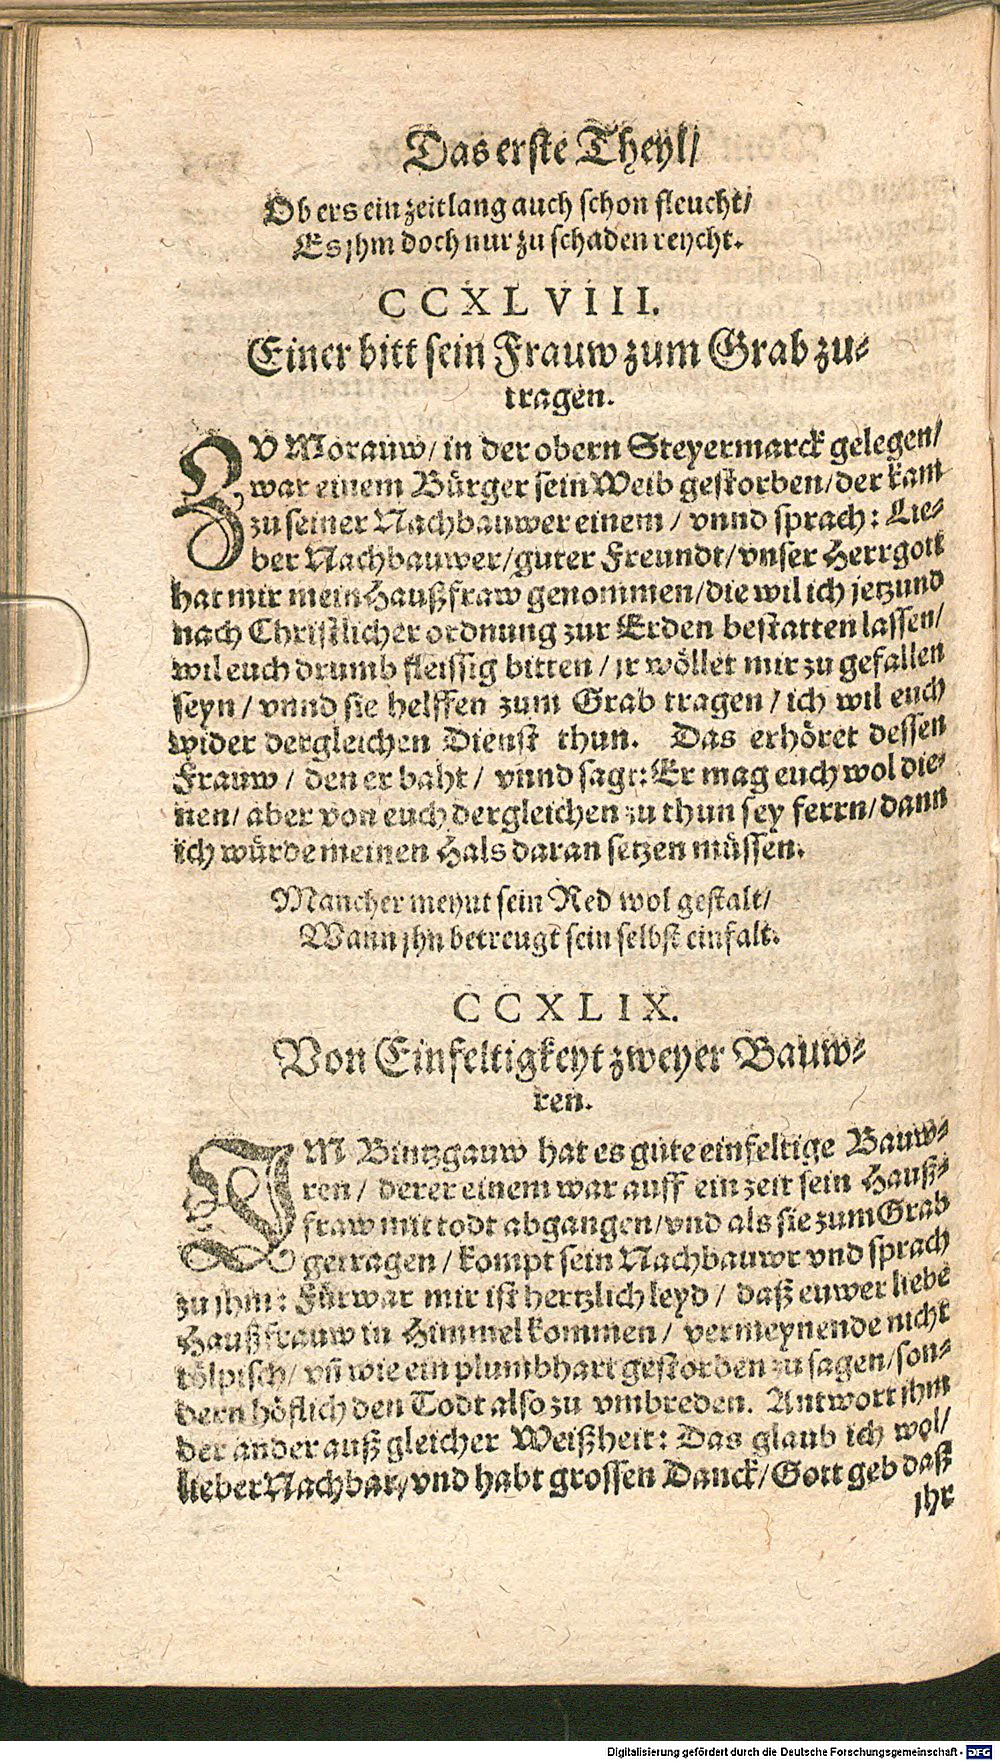 Das erste Theyl/
Ob ers ein zeitlang auch schon fleucht/
Es jhm doch nur zu schaden reycht.
CCXLVIII.
Einer bitt sein Frauw zum Grab zu-
tragen.
ZV Morauw/ in der obern Steyermarck gelegen/
war einem Bürger sein Weib gestorben/ der kam
zu seiner Nachbauwer einem / vnnd sprach: Lie-
ber Nachbauwer/ guter Freundt/ vnser Herrgott
hat mir mein Haußfraw genommen/ die wil ich jetzund
nach Christlicher ordnung zur Erden bestatten lassen/
wil euch drumb fleissig bitten / jr wöllet mir zu gefallen
seyn / vnnd sie helffen zum Grab tragen / ich wil euch
wider dergleichen Dienst thun. Das erhöret dessen
Frauw / den er baht / vnnd sagt: Er mag euch wol die-
nen/ aber von euch dergleichen zu thun sey ferrn/ dann
ich würde meinen Hals daran setzen müssen.
Mancher meynt sein Red wol gestalt/
Wann jhn betreugt sein selbst einfalt.
CCXLIX.
Von Einfeltigkeyt zweyer Bauw-
ren.
IM Bintzgauw hat es gute einfeltige Bauw-
ren / derer einem war auff ein zeit sein Hauß-
fraw mit todt abgangen/ vnd als sie zum Grab
getragen / kompt sein Nachbauwr vnd sprach
zu jhm: Fürwar mir ist hertzlich leyd / daß euwer liebe
Haußfrauw in Himmel kommen / vermeynende nicht
tölpisch/ vñ wie ein plumbhart gestorben zu sagen/ son-
dern höflich den Todt also zu vmbreden. Antwort ihm
der ander auß gleicher Weißheit: Das glaub ich wol/
lieber Nachbar/ vnd habt grossen Danck/ Gott geb daß
jhr
Digitalisierung gefördert durch die Deutsche Forschungsgemeinschaft - DFG